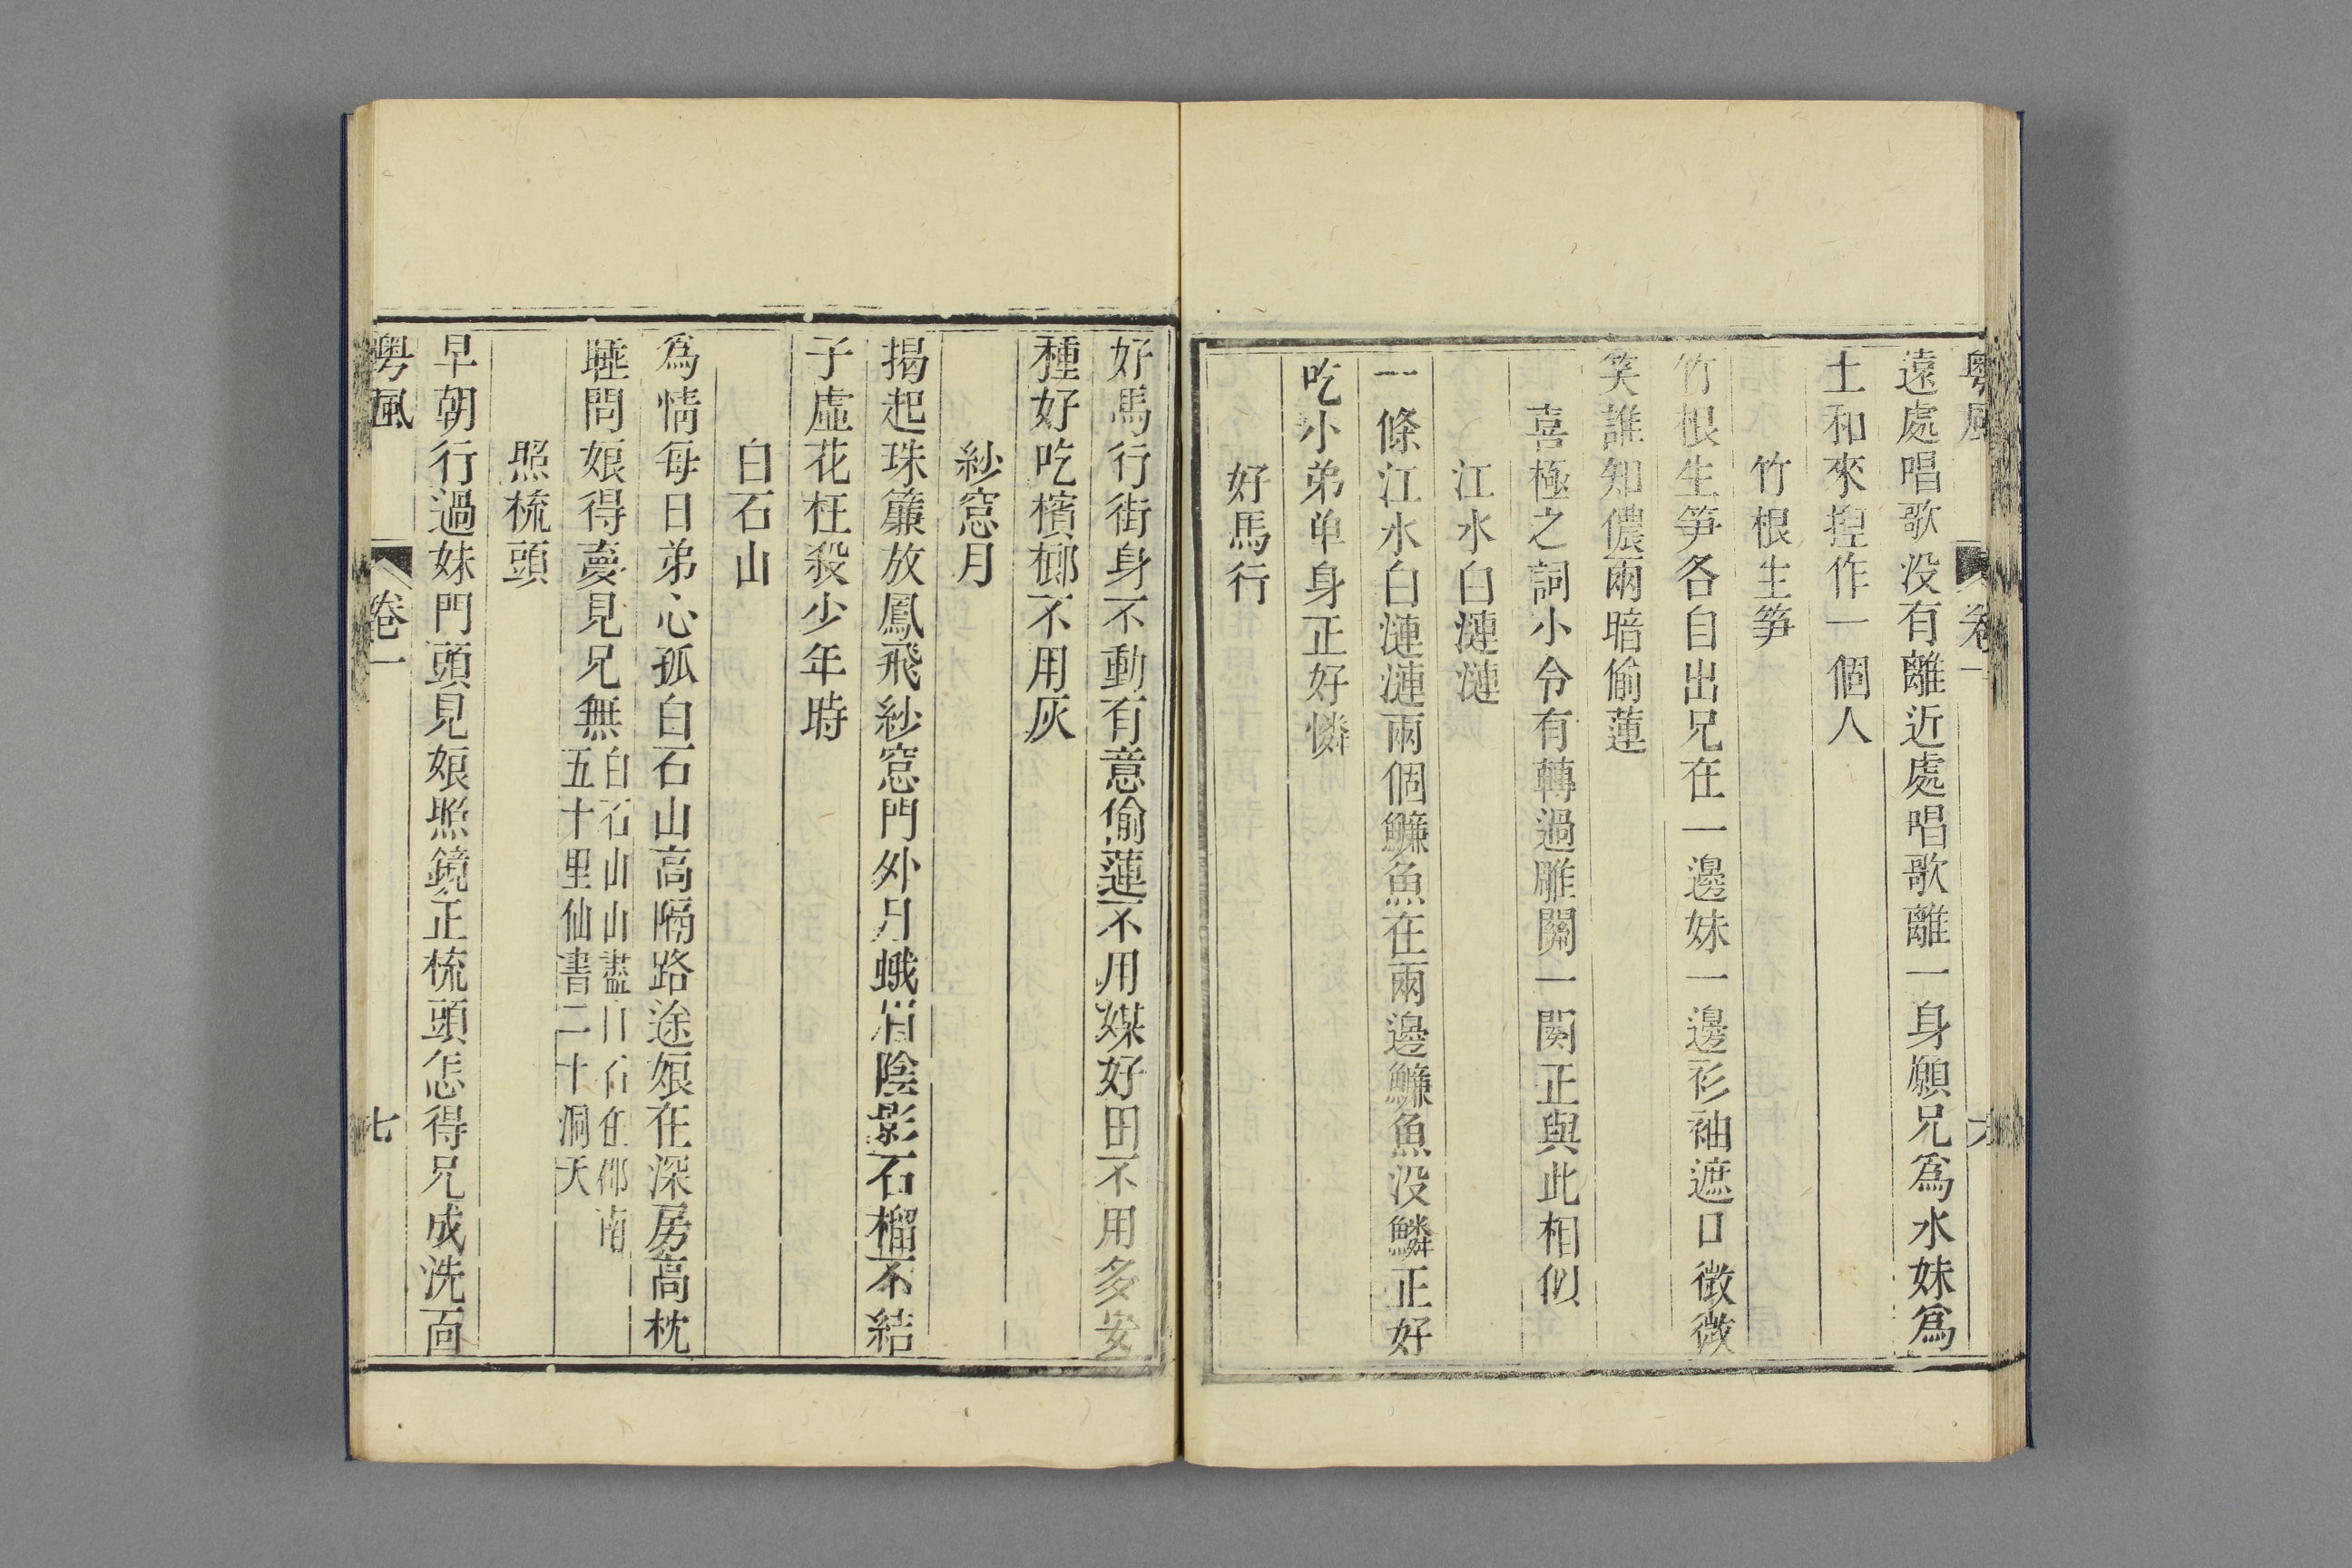 粤風 卷一 六
遠處唱歌没有離近處唱歌離一身願兄爲水妹爲
土和來揑作一個人
竹根生笋
竹根生笋各自出兄在一邊妹一邊衫袖遮口微微
笑誰知儂兩暗偷蓮
喜極之詞小令有轉過雕闌一闋正與此相似
江水白漣漣
一條江水白漣漣兩個鰜魚在兩邊鰜魚没鱗正好
吃小弟单身正好憐
好馬行
好馬行街身不動有意偷蓮不用媒好田不用多安
種好吃檳榔不用灰
紗窓月
揭起珠簾放鳳飛紗窓門外月蛾眉陰影石榴不結
子虛花枉殺少年時
白石山
爲情每日弟心孤白石山高隔路途娘在深房高枕
睡問娘得夢見兄無
白石山山盡白石在鄉南
五十里仙書二十洞天
照梳頭
早朝行過妹門頭見娘照鏡正梳頭怎得兄成洗面
粤風 卷一 七